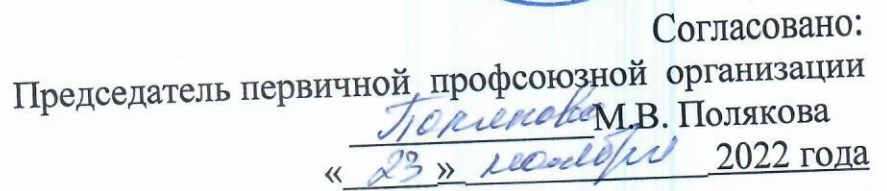 Согласовано:
Председатель первичной профсоюзной организации
Полякова М.В. Полякова
« 23 » ноября 2022 года